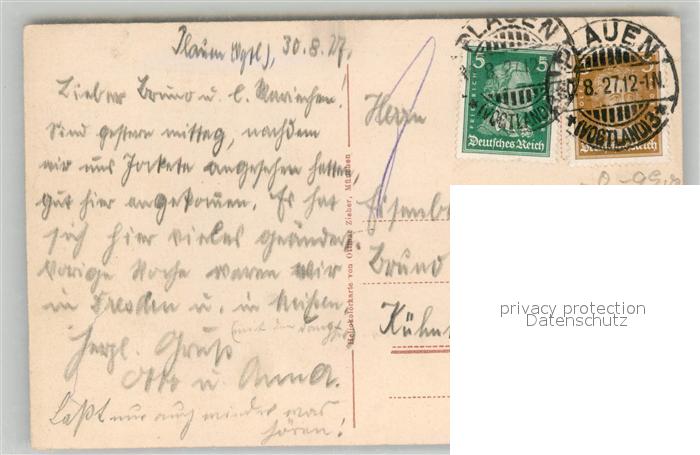 Plauen (Vgtl), 30.8.27.
Lieber Bruno u. l. Mariechen!
Sind gestern mittag, nachdem
wir uns Jocketa angesehen hatten,
gut hier angekommen. Es hat
sich hier vieles geändert.
Vorige Woche waren wir
in Dresden u. in Meißen
(mit dem
Herzl. Gruß
Otto u. Anna.
Laßt nur auch wieder was
hören!
Heliokolorkarte von Ottmar Zieher, München
Herrn
Bruno
PLAUEN
(VOGTLAND)
5 5
FRIEDRICH
Deutsches Reich
PLAUEN
8.27.12-1N.
*(VOGTLAND)3*
Deutsches Reich
privacy protection
Datenschutz